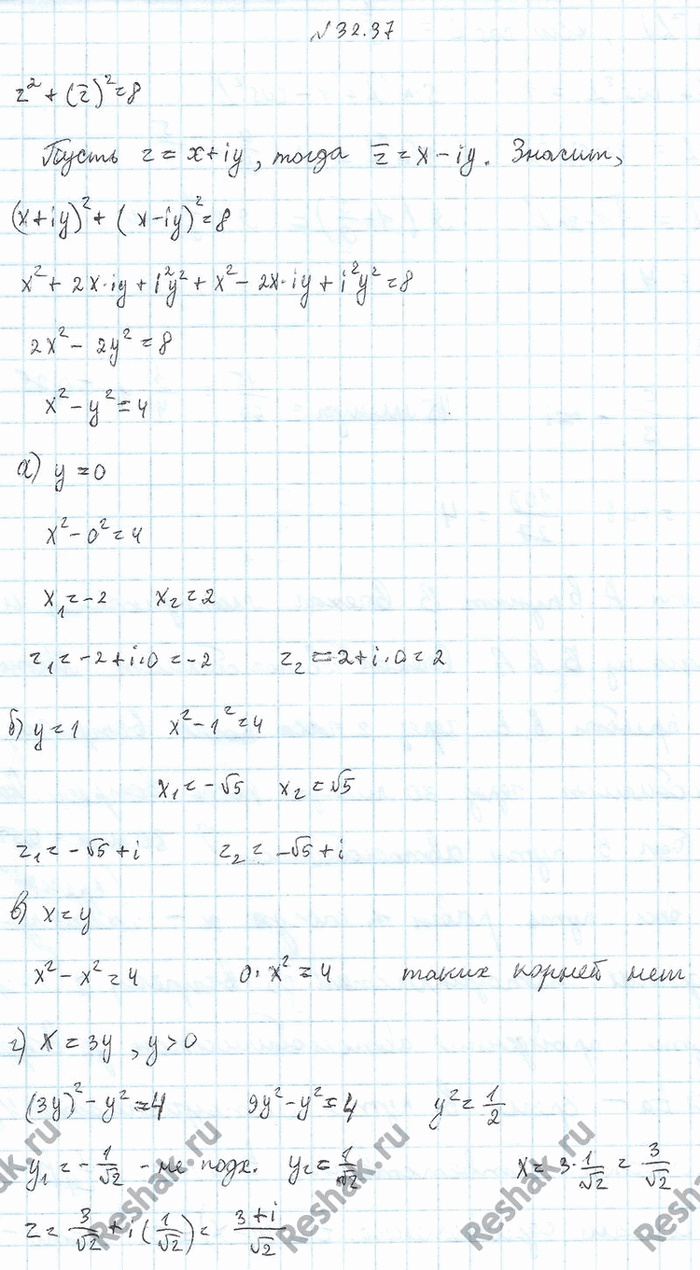 №32.37
z² + (z̅)² = 8
Пусть z = x+iy, тогда z̅ = x - iy. Значит,
(x+iy)² + (x-iy)² = 8
x² + 2x·iy + i²y² + x² - 2x·iy + i²y² = 8
2x² - 2y² = 8
x² - y² = 4
а) y = 0
x² - 0² = 4
x₁ = -2 x₂ = 2
z₁ = -2+i·0 = -2 z₂ = 2+i·0 = 2
б) y = 1 x² - 1² = 4
x₁ = -√5 x₂ = √5
z₁ = -√5 + i z₂ = -√5 + i
в) x = y
x² - x² = 4 0·x² = 4 таких корней нет
г) x = 3y, y > 0
(3y)² - y² = 4 9y² - y² = 4 y² = 1/2
y₁ = -1/√2 - не подх. y₂ = 1/√2 x = 3·1/√2 = 3/√2
z = 3/√2 + i(1/√2) = (3+i)/√2
Reshak.ru Reshak.ru Reshak.ru Reshak.ru